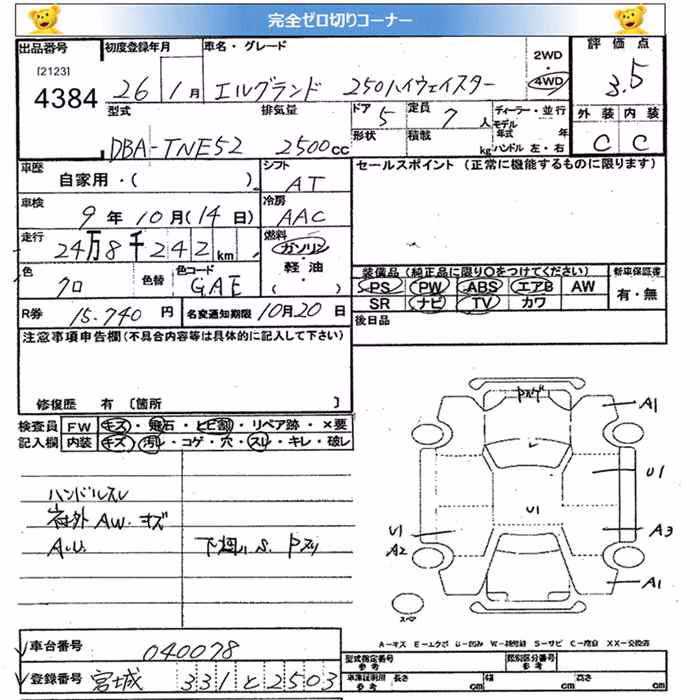 完全ゼロ切りコーナー
出品番号 初度登録年月 車名・グレード 2WD・4WD 評価点
[2123]
4384 26 1月 エルグランド 250ハイウェイスター 3.5
型式 排気量 ドア 5 定員 7人 ディーラー・並行
モデル年式 年
形状 積載 kg ハンドル 左・右
外装 内装
DBA-TNE52 2500cc C C
車歴 シフト セールスポイント(正常に機能するものに限ります)
自家用・( ) AT
車検 冷房
9年10月(14日) AAC
走行 燃料
24万8千242km ガソリン・軽油
( )
色 色替 色コード
クロ GAE
装備品(純正品に限り○をつけてください) 新車保証書
PS PW ABS エアB AW 有・無
SR ナビ TV カワ
R券 15.740円 名変通知期限 10月20日 後日品
注意事項申告欄(不具合内容等は具体的に記入して下さい)
修復歴 有 〔箇所 〕
検査員 FW キズ・飛石・ヒビ割・リペア跡・×要
記入欄 内装 キズ・汚れ・コゲ・穴・スレ・キレ・破レ
ハンドルスレ
社外 AW.キズ
A.U. 下廻り S.
A1
U1
U1
U1 A3
A2
A1
スペア
A-キズ E-エクボ U-凹み S-サビ C-腐食 XX-交換済
車台番号 040078
型式指定番号 参考 類別区分番号 参考
登録番号 宮城 331 と 2503
車庫証明用 参考 長さ cm 幅 cm 高さ cm